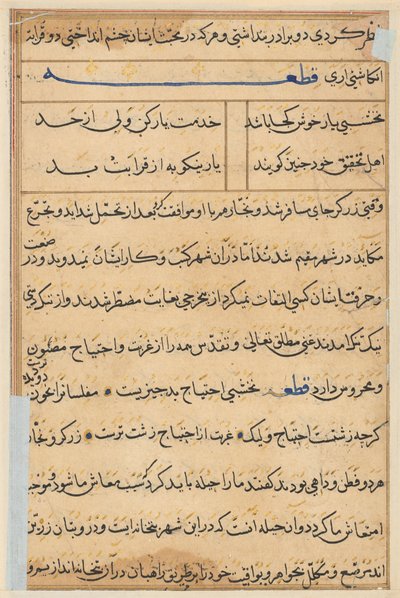 نظر کردی دو برادر پنداشتی و هر که در محبت ایشان چشم انداختی دو قرابه
انکاشتی اری قطعه
نخشبی یار خوش کجا باشد خدمت یار کن ولی از حد
اهل تحقیق خود چنین گویند یار نیکو به از قرابت بد
وقتی زرگر جای مسافر شد و نجار هم با او موافقت کرد بعد از تحمل شداید و تجرع
مکاید در شهر مقیم شدند اما در آن شهر کسب و کار ایشان نمیدوید و در صنعت
و حرفت ایشان کسی التفات نمیکرد از بیخرجی بغایت مضطر شدند و از نیک
تنک امدند غنی مطلق تعالی و تقدس همه را از غربت و احتیاج مصئون
و محروس دارد قطعه نخشبی احتیاج بد چیزیست مفلسا فراخون
کرچه زشتست احتیاج ولیک غربت از احتیاج زشت ترست زرگر و نجار
هر دو فطن و داهی بودند کفتند ما را حیله باید کرد که سبب معاش ما شود و موجب
انتعاش ما کردد و ان حیله انست که در این شهر بتخانه ایست و درو بتان زرین
اند مرصع و مکلل بجواهر و یواقیت خود را بر طریق راهبان در آن بتخانه اندازیم و